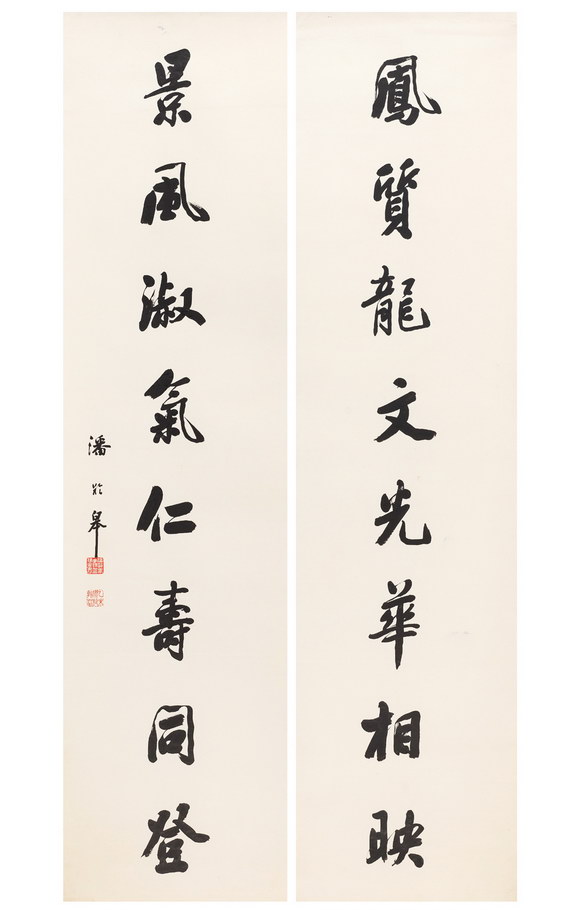 鳳質龍文光華相映
景風淑氣仁壽同登
潘齡皋